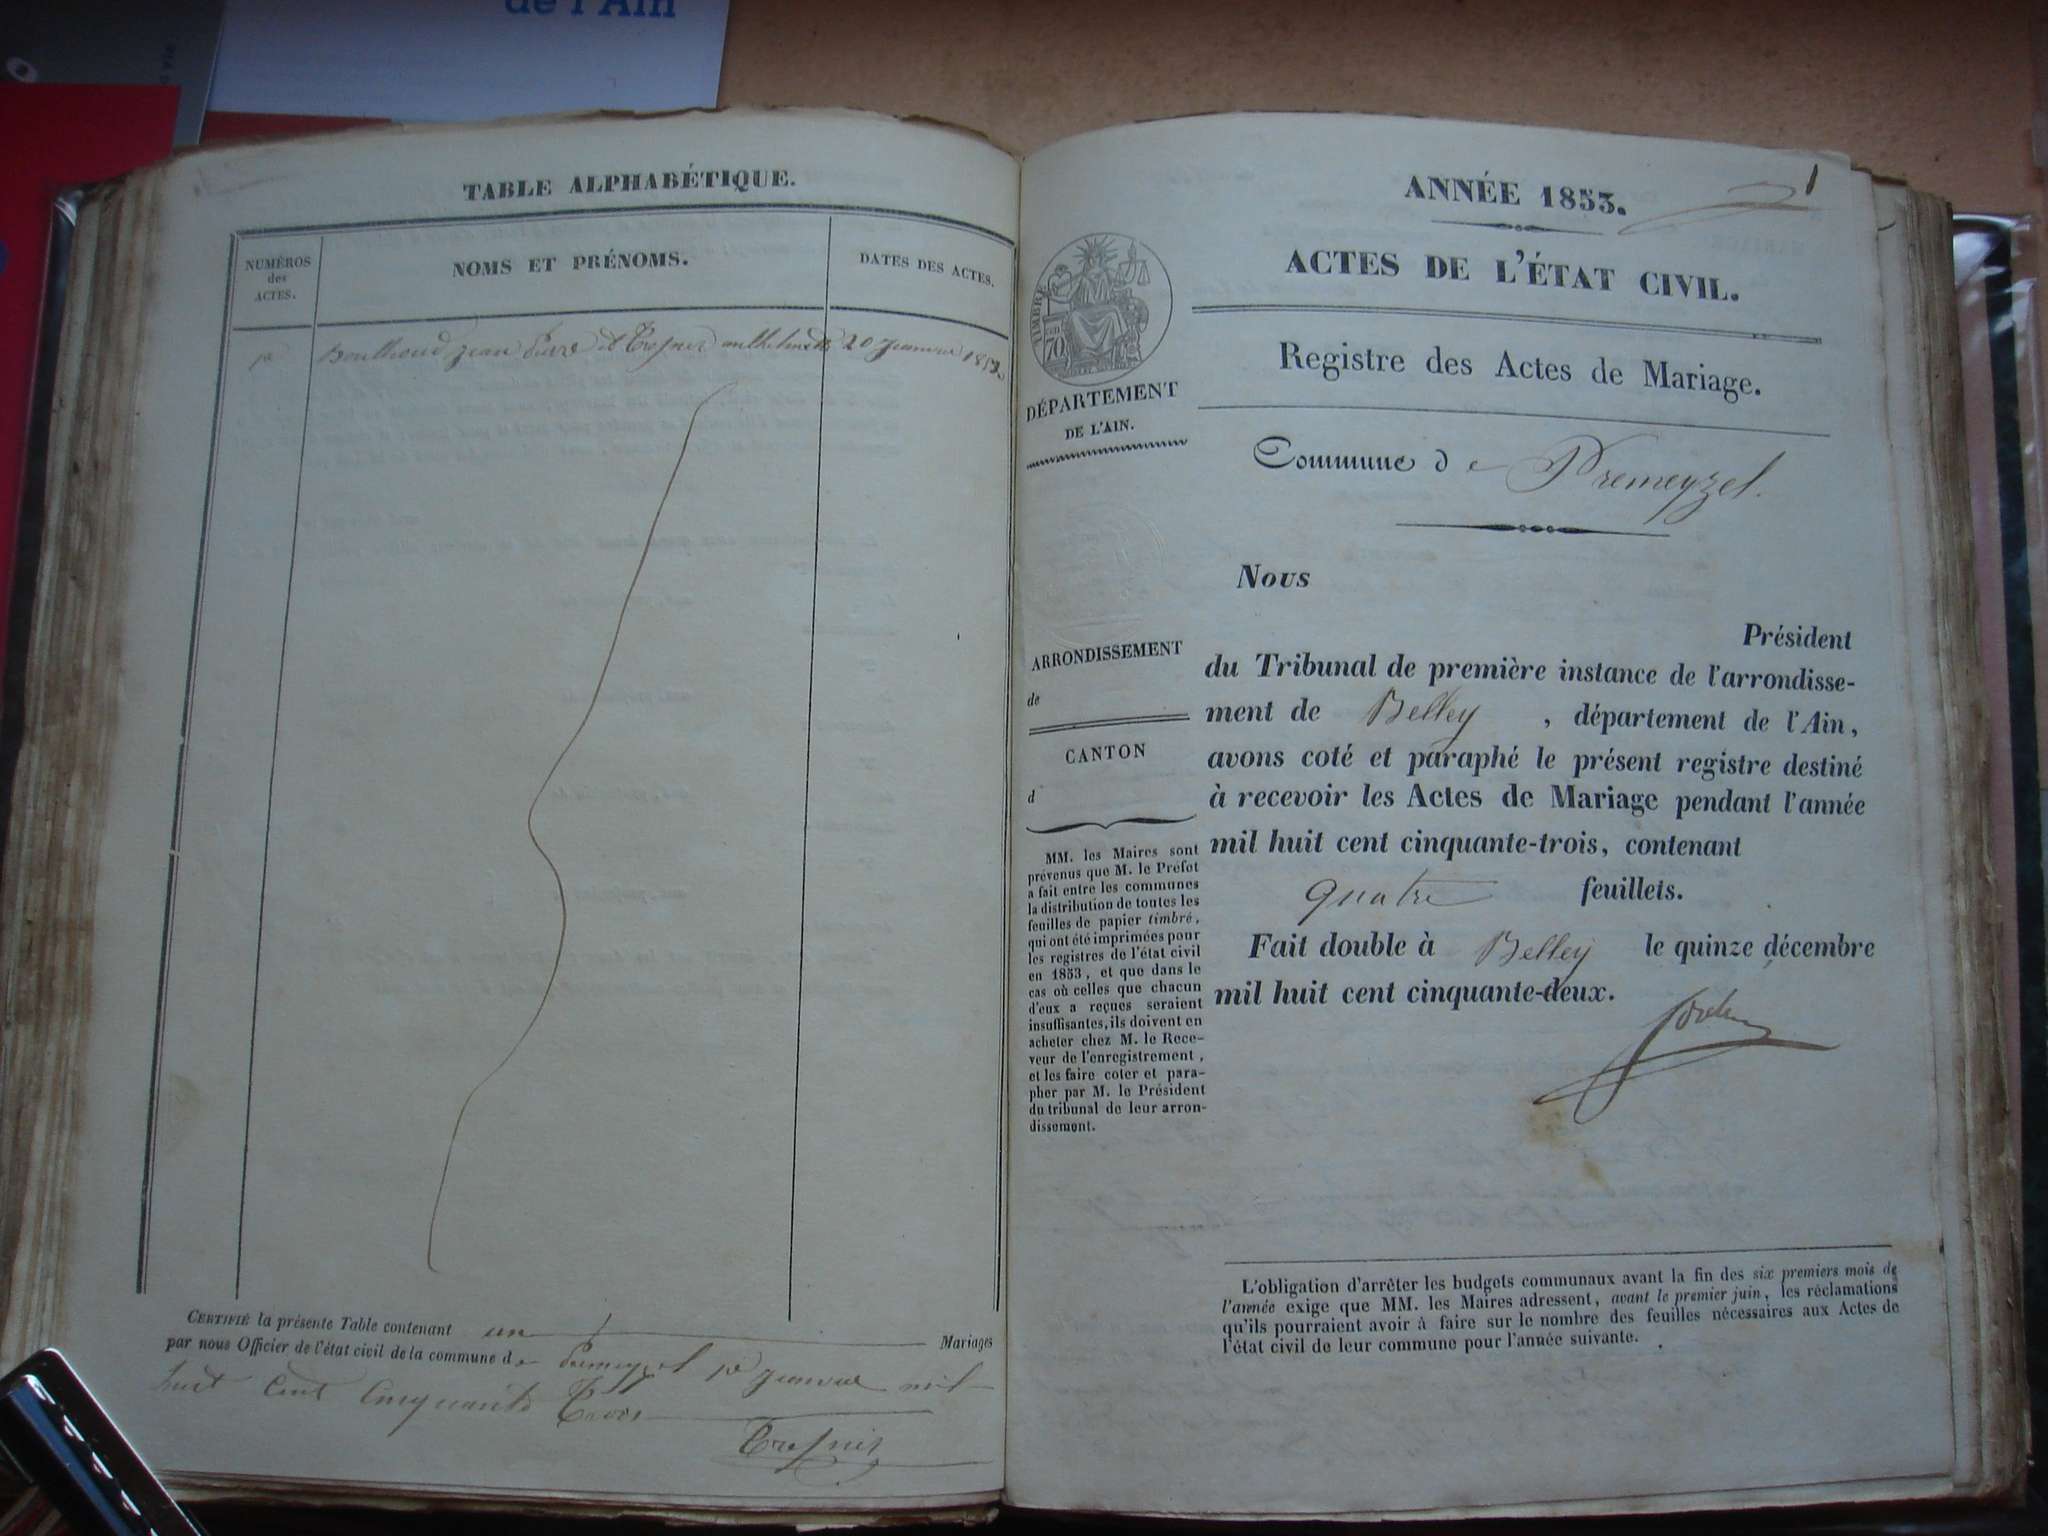 de l'Ain
TABLE ALPHABÉTIQUE.
NUMÉROS
des
ACTES.
NOMS ET PRÉNOMS.
DATES DES ACTES.
Jean Pierre et 20 Janvier 1852
CERTIFIÉ la présente Table contenant un Mariages
par nous Officier de l'état civil de la commune de Premeyzel 1er Janvier mil
huit Cent Cinquante Trois
1
ANNÉE 1853.
ACTES DE L'ÉTAT CIVIL.
Registre des Actes de Mariage.
TIMBRE
70
DÉPARTEMENT
DE L'AIN.
Commune de Premeyzel.
Nous
Président
du Tribunal de première instance de l'arrondisse-
ment de Belley, département de l'Ain,
avons coté et paraphé le présent registre destiné
à recevoir les Actes de Mariage pendant l'année
mil huit cent cinquante-trois, contenant
quatre feuillets.
Fait double à Belley le quinze décembre
mil huit cent cinquante-deux.
ARRONDISSEMENT
de
CANTON
d
MM. les Maires sont
prévenus que M. le Préfet
a fait entre les communes
la distribution de toutes les
feuilles de papier timbré,
qui ont été imprimées pour
les registres de l'état civil
en 1853, et que dans le
cas où celles que chacun
d'eux a reçues seraient
insuffisantes, ils doivent en
acheter chez M. le Rece-
veur de l'enregistrement,
et les faire coter et para-
pher par M. le Président
du tribunal de leur arron-
dissement.
L'obligation d'arrêter les budgets communaux avant la fin des six premiers mois de
l'année exige que MM. les Maires adressent, avant le premier juin, les réclamations
qu'ils pourraient avoir à faire sur le nombre des feuilles nécessaires aux Actes de
l'état civil de leur commune pour l'année suivante.